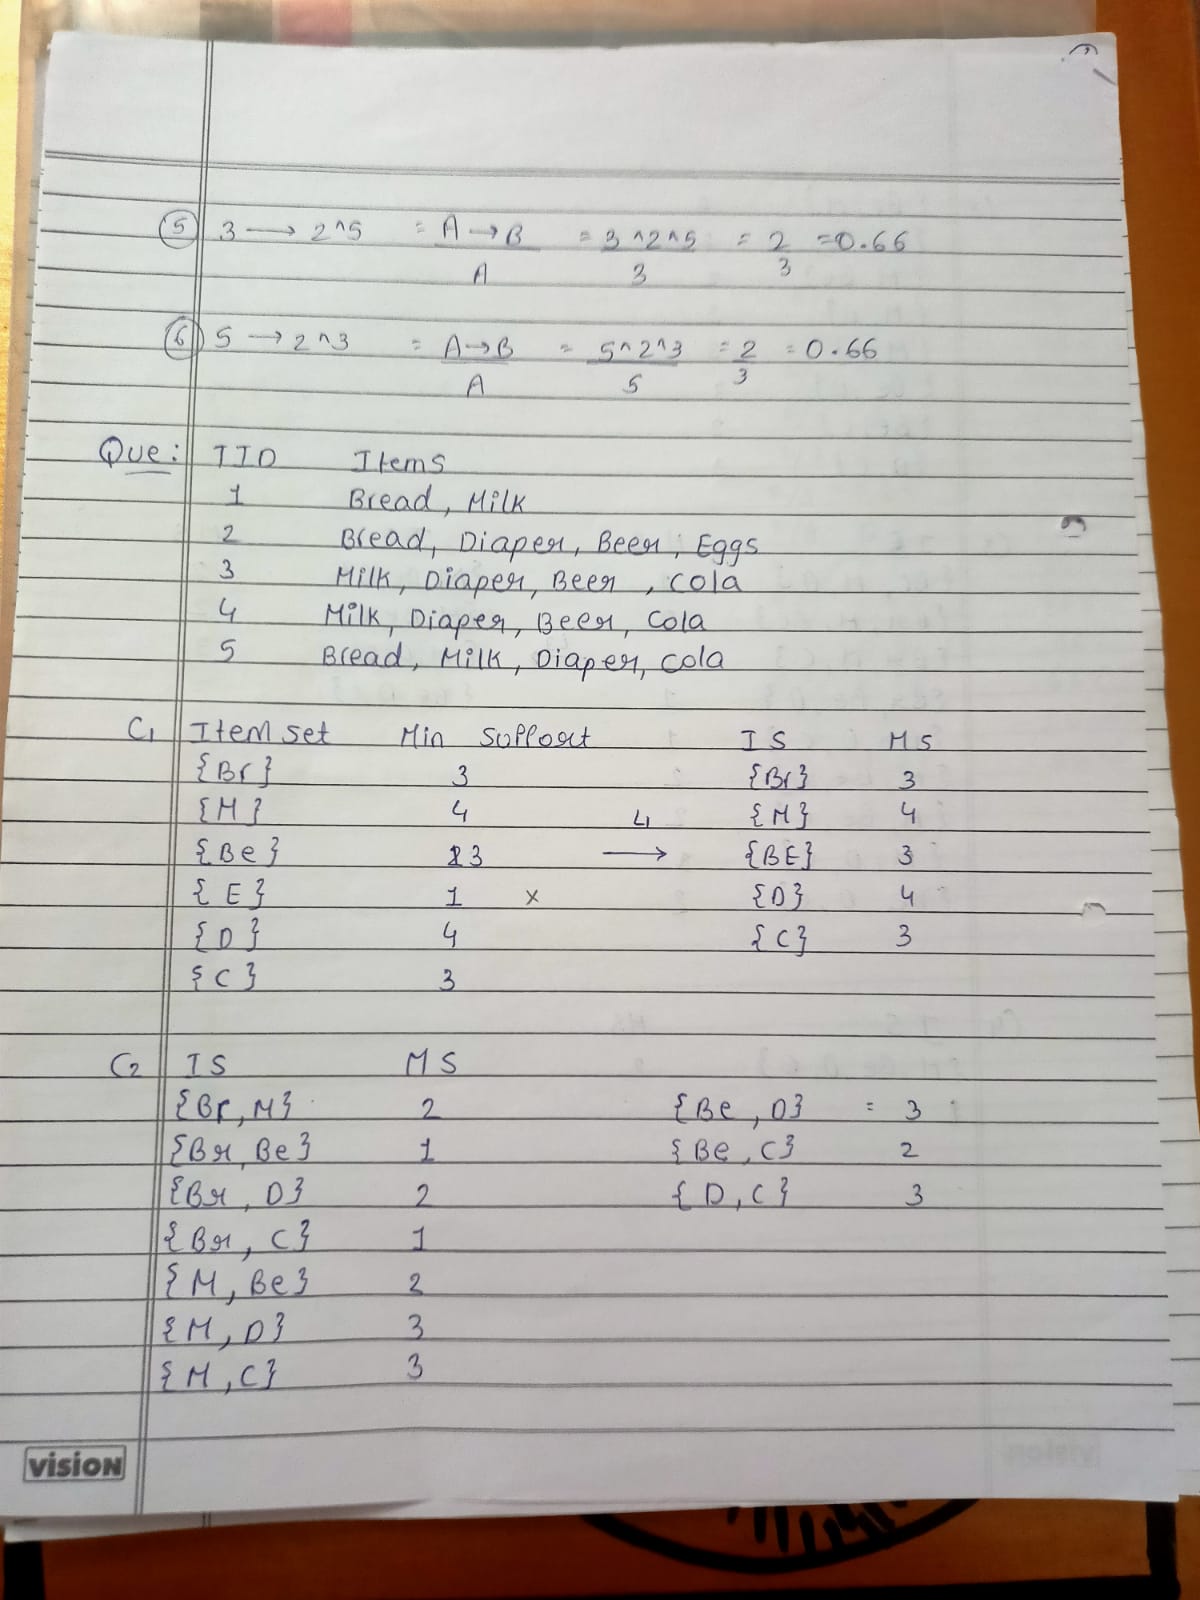 ⑤ 3 → 2^5 = A→B / A = 3^2^5 / 3 = 2/3 = 0.66
⑥ 5 → 2^3 = A→B / A = 5^2^3 / 5 = 2/3 = 0.66
Que: TID Items
1 Bread, Milk
2 Bread, Diaper, Beer, Eggs
3 Milk, Diaper, Beer, cola
4 Milk, Diaper, Beer, Cola
5 Bread, Milk, Diaper, cola
C1 Item set Min Support IS MS
{Br} 3 {Br} 3
{M} 4 L1 {M} 4
{Be} 3 → {BE} 3
{E} 1 x {D} 4
{D} 4 {C} 3
{C} 3
C2 IS MS
{Br, M} 2 {Be, D} = 3
{Br, Be} 1 {Be, C} 2
{Br, D} 2 {D, C} 3
{Br, C} 1
{M, Be} 2
{M, D} 3
{M, C} 3
vision